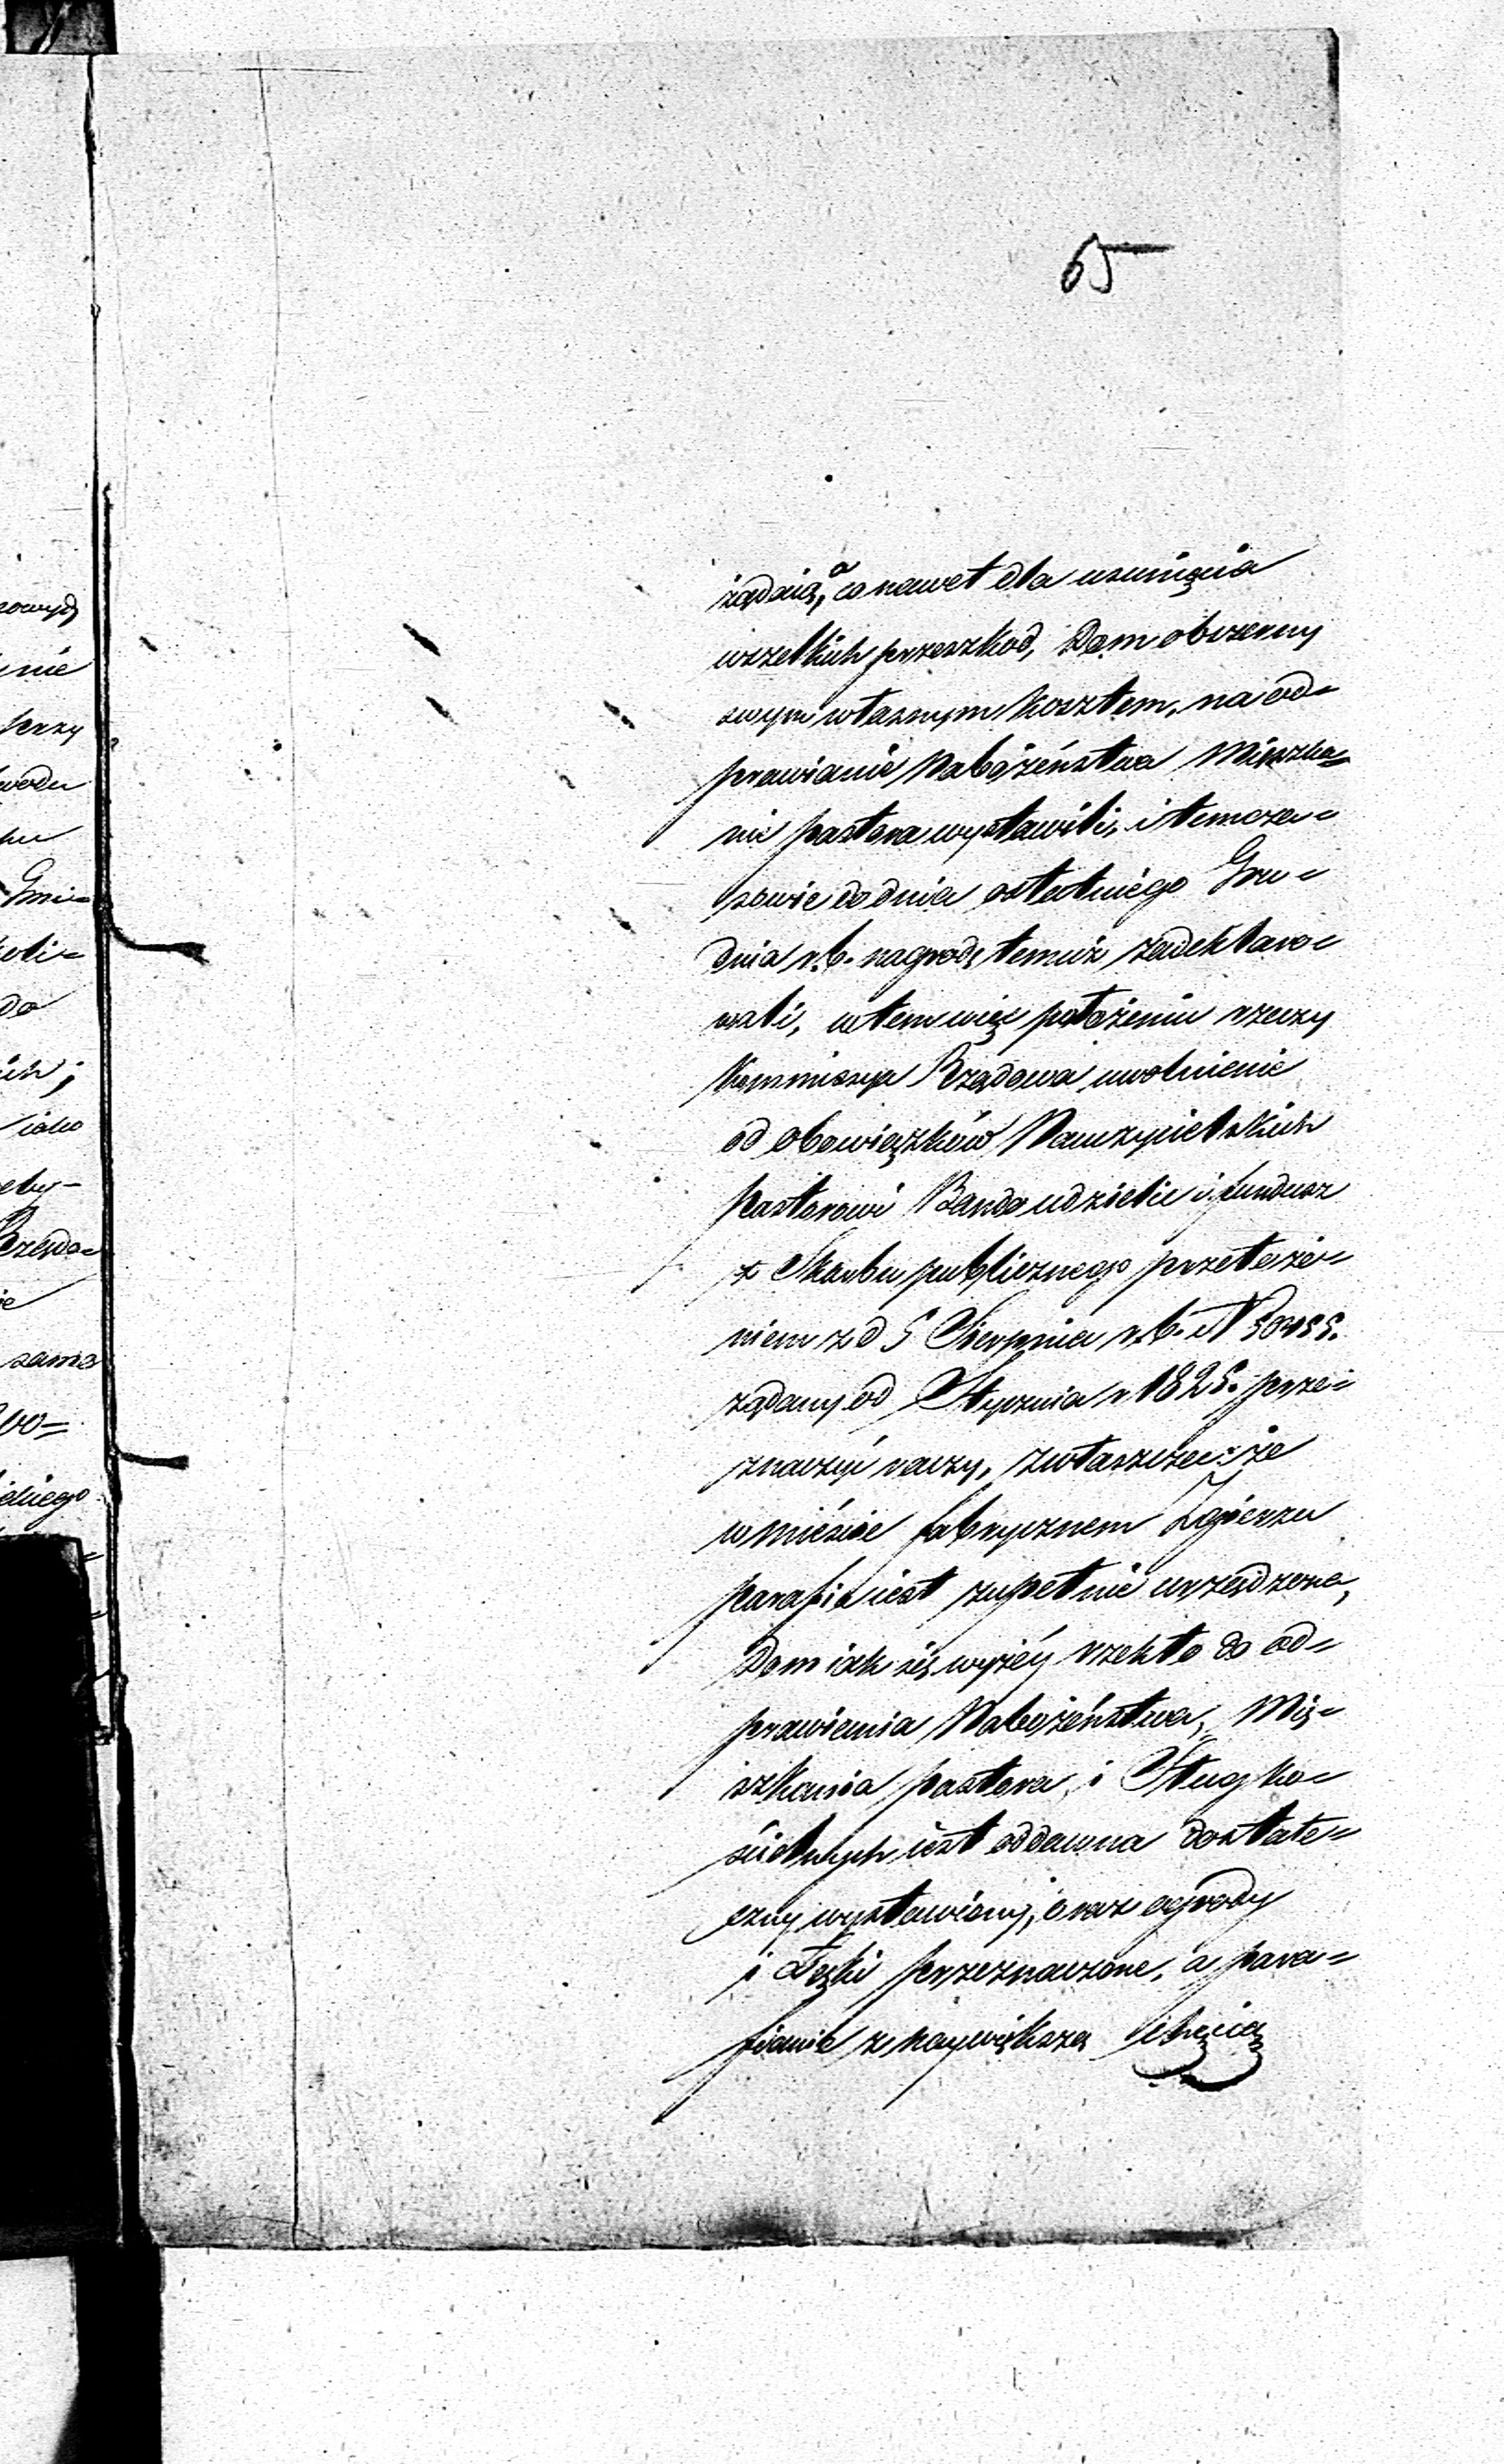 65
żądaią, a co nawet dla usunięcia
wszelkich przeszkod, Dom obszerny
swym własnym kosztem, na od=
prawianie Nabożeństwa Mieszka=
nie pastora wystawili, i temcza=
sowie do dnia ostatniego Gru=
dnia r. b. nagrodę temuż zadeklaro=
wali, w tem więc położeniu rzeczy
Kommissya Rządowa uwolnienie
od obowiązków Nauczycielskich
Pastorowi Bando udzielić i fundusz
z Skarbu publicznego przełoże=
niem z d 5 Sierpnia r. b. N
żądany od Stycznia r. 1825. prze=
znaczyć raczy, zwłaszcza: że
w mieście fabrycznem Zgierzu
parafia iest zupełnie urządzona,
Dom iak się wyżéy rzekło do od=
prawienia Nabożeństwa, Mie=
szkania pastora, i Sług ko=
ścielnych iest oddawna dostate=
czny wystawiony, oraz ogrody
i Łąki przeznaczone, a para=
fianie z naywiększą chęcią
rowych
nie
wodu
Gmi=
koli=
do
ich;
iako
eby=
Rządo=
ie
samo